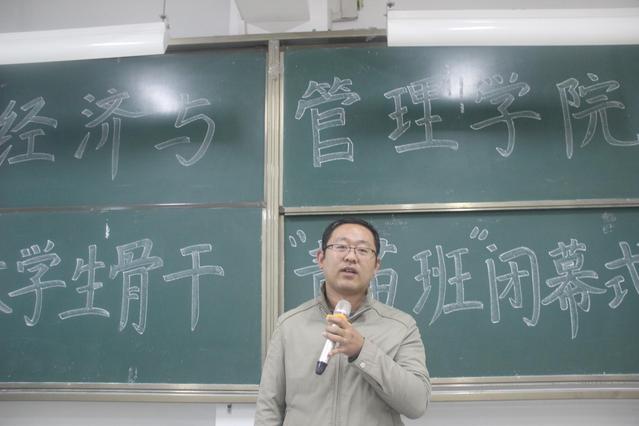 经济与管理学院
学生骨干“青苗班”闭幕式